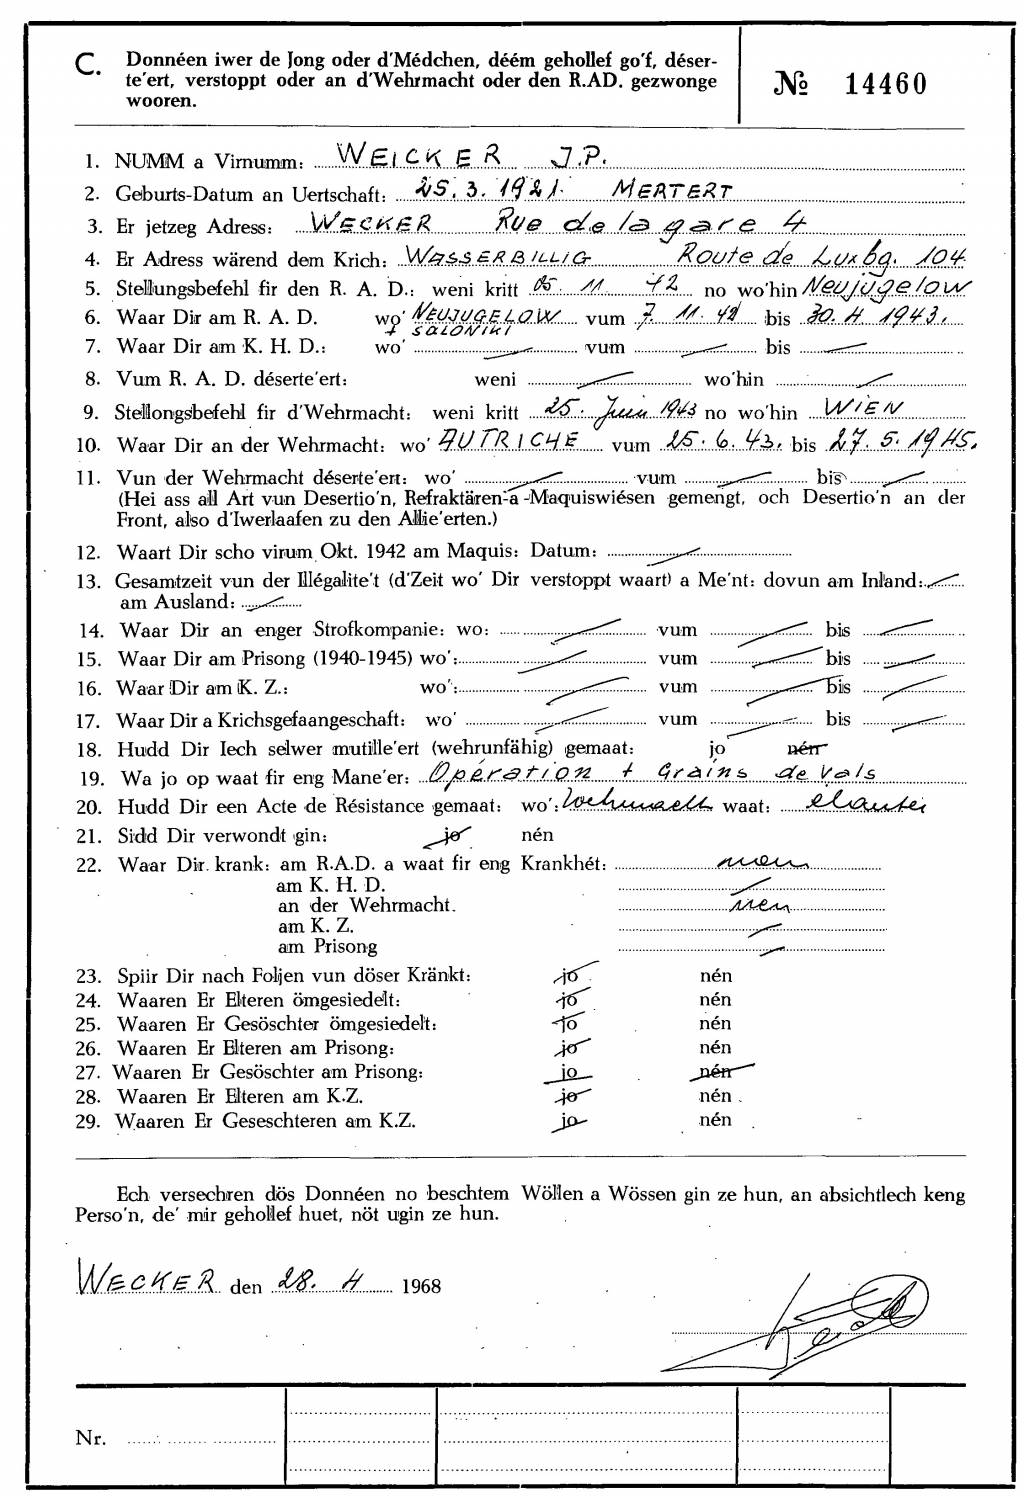 C. Donnéen iwer de Jong oder d'Médchen, déém gehollef go'f, déser-
te'ert, verstoppt oder an d'Wehrmacht oder den R.AD. gezwonge
wooren.
№ 14460
1. NUMM a Virnumm: WEICKER J.P.
2. Geburts-Datum an Uertschaft: 25.3.1921. MERTERT
3. Er jetzeg Adress: WECKER Rue de la gare 4
4. Er Adress wärend dem Krich: WASSERBILLIG Route de Luxbg. 104
5. Stellungsbefehl fir den R. A. D.: weni kritt 05. 11. 42 no wo'hin Neujügelow
6. Waar Dir am R. A. D. wo' NEUJUGELOW vum 7. 11. 42 bis 30. 4. 1943.
+ SALONIKI
7. Waar Dir am K. H. D.: wo' vum bis
8. Vum R. A. D. déserte'ert: weni wo'hin
9. Stellongsbefehl fir d'Wehrmacht: weni kritt 25. Juin 1943 no wo'hin WIEN
10. Waar Dir an der Wehrmacht: wo' AUTRICHE vum 25. 6. 43. bis 27. 5. 1945.
11. Vun der Wehrmacht déserte'ert: wo' vum bis
(Hei ass all Art vun Desertio'n, Refraktären-a-Maquiswiésen gemengt, och Desertio'n an der
Front, also d'Iwerlaafen zu den Allie'erten.)
12. Waart Dir scho virum Okt. 1942 am Maquis: Datum:
13. Gesamtzeit vun der Illégalite't (d'Zeit wo' Dir verstoppt waart) a Me'nt: dovun am Inland:
am Ausland:
14. Waar Dir an enger Strofkompanie: wo: vum bis
15. Waar Dir am Prisong (1940-1945) wo': vum bis
16. Waar Dir am K. Z.: wo': vum bis
17. Waar Dir a Krichsgefaangeschaft: wo' vum bis
18. Hudd Dir Iech selwer mutille'ert (wehrunfähig) gemaat: jo nén
19. Wa jo op waat fir eng Mane'er: Opération + Grains de Vals
20. Hudd Dir een Acte de Résistance gemaat: wo': Wehrmacht waat:
21. Sidd Dir verwondt gin: jo nén
22. Waar Dir krank: am R.A.D. a waat fir eng Krankhét: nen
am K. H. D.
an der Wehrmacht. nen
am K. Z.
am Prisong
23. Spiir Dir nach Foljen vun döser Kränkt: jo nén
24. Waaren Er Elteren ömgesiedelt: jo nén
25. Waaren Er Gesöschter ömgesiedelt: jo nén
26. Waaren Er Elteren am Prisong: jo nén
27. Waaren Er Gesöschter am Prisong: jo nén
28. Waaren Er Elteren am K.Z. jo nén
29. Waaren Er Geseschteren am K.Z. jo nén
Ech versechren dös Donnéen no beschtem Wöllen a Wössen gin ze hun, an absichtlech keng
Perso'n, de' mir gehollef huet, nöt ugin ze hun.
WECKER den 28. 4 1968
Nr.